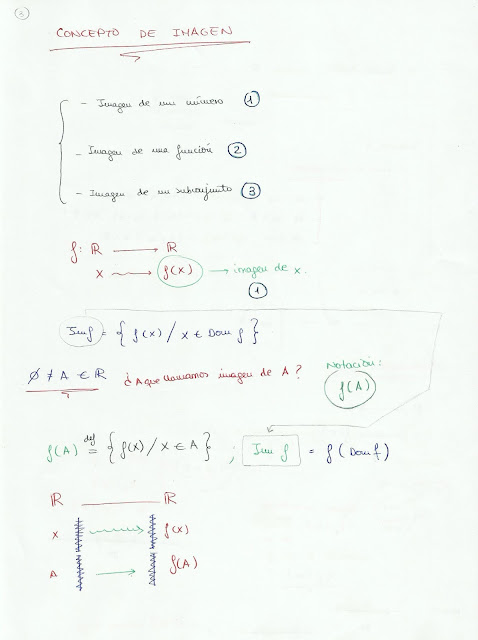 3
CONCEPTO DE IMAGEN
- Imagen de un número 1
- Imagen de una función 2
- Imagen de un subconjunto 3
f: ℝ ⟶ ℝ
x ⇝ f(x) → imagen de x.
1
Im f = { f(x) / x ∈ Dom f }
Ø ≠ A ⊂ ℝ ¿A que llamamos imagen de A?
Notación:
f(A)
f(A) def = { f(x) / x ∈ A } ; Im f = f(Dom f)
ℝ ℝ
x ⇝ f(x)
A → f(A)